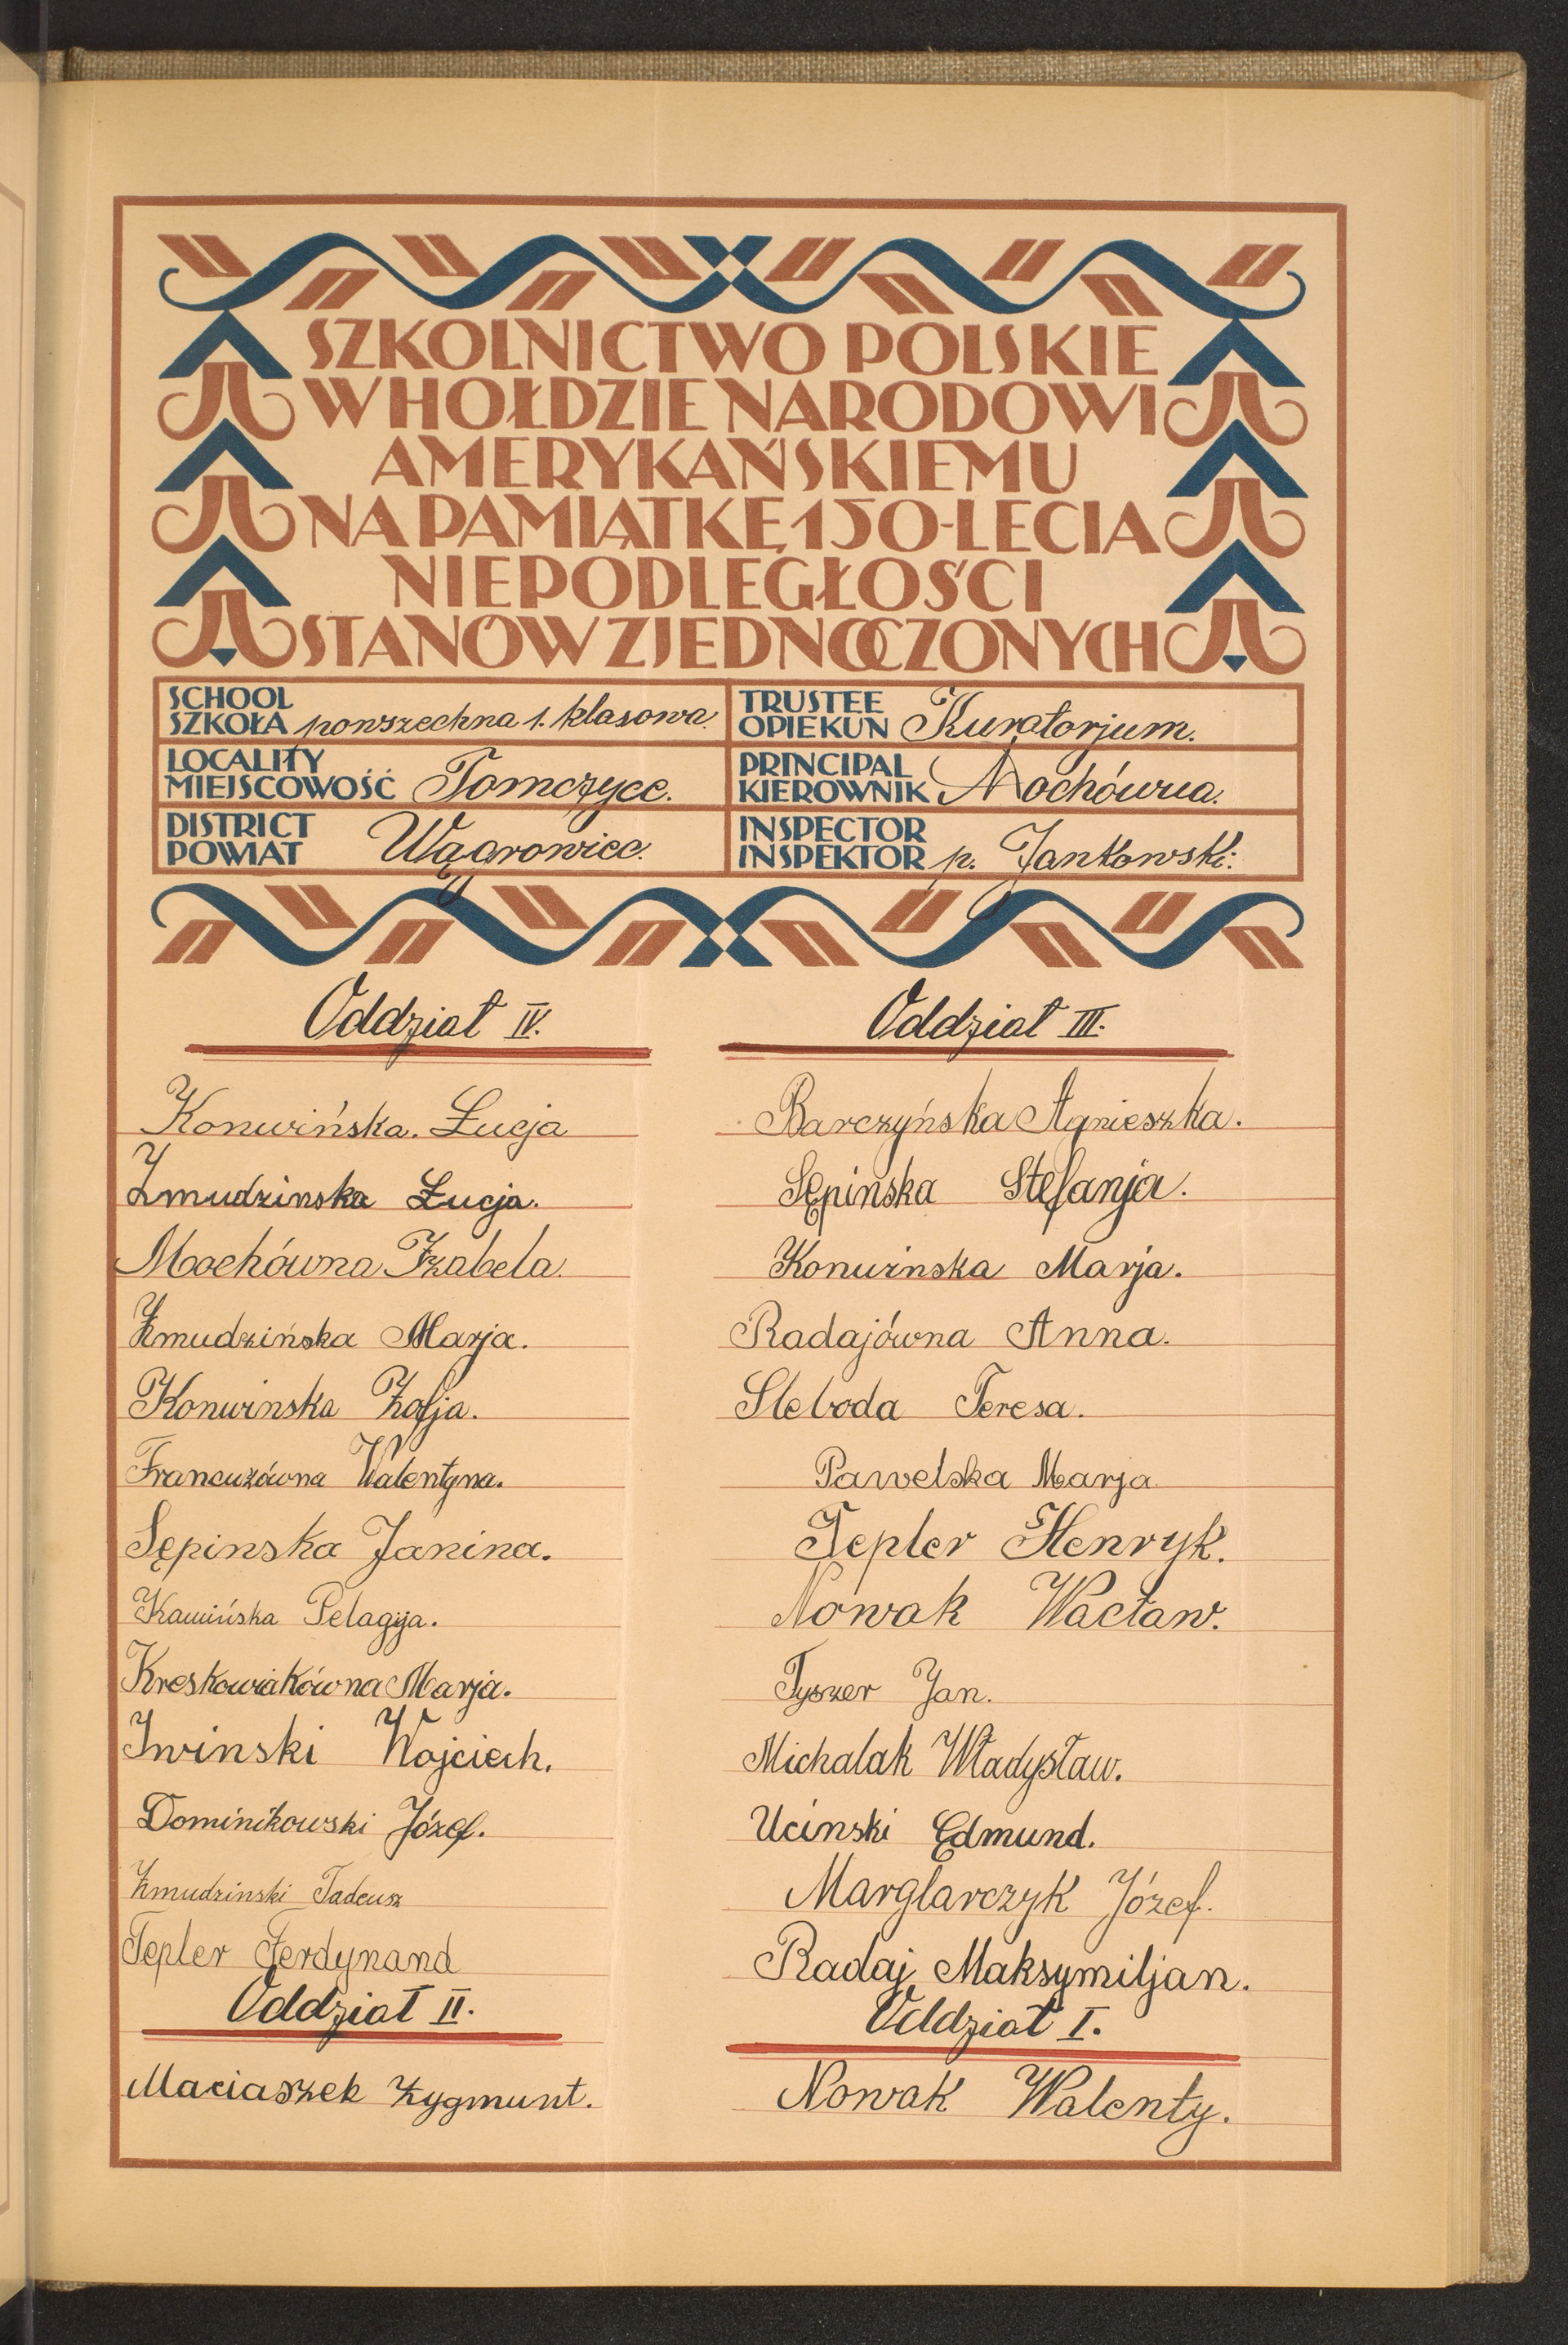 SZKOLNICTWO POLSKIE
W HOŁDZIE NARODOWI
AMERYKAŃSKIEMU
NA PAMIĄTKĘ 150-LECIA
NIEPODLEGŁOŚCI
STANÓW ZJEDNOCZONYCH
SCHOOL
SZKOŁA powszechna 1. klasowa.
LOCALITY
MIEJSCOWOŚĆ Tomczyce.
DISTRICT
POWIAT Wągrowiec.
TRUSTEE
OPIEKUN Kuratorjum.
PRINCIPAL
KIEROWNIK Mochówna.
INSPECTOR
INSPEKTOR p. Jankowski.
Oddział IV.
Konwińska. Łucja
Żmudzinska Łucja.
Mochówna Izabela.
Żmudzińska Marja.
Konwinska Zofja.
Francuzówna Walentyna.
Sępinska Janina.
Kamińska Pelagja.
Kreskowiakówna Marja.
Iwinski Wojciech.
Dominikowski Józef.
Żmudzinski Tadeusz
Tepler Ferdynand
Oddział II.
Maciaszek Zygmunt.
Oddział III.
Barczyńska Agnieszka.
Sępińska Stefanja.
Konwinska Marja.
Radajówna Anna.
Sleboda Teresa.
Pawelska Marja.
Tepler Henryk.
Nowak Wacław.
Tyszer Jan.
Michalak Władysław.
Ucinski Edmund.
Marglarczyk Józef.
Radaj Maksymiljan.
Oddział I.
Nowak Walenty.